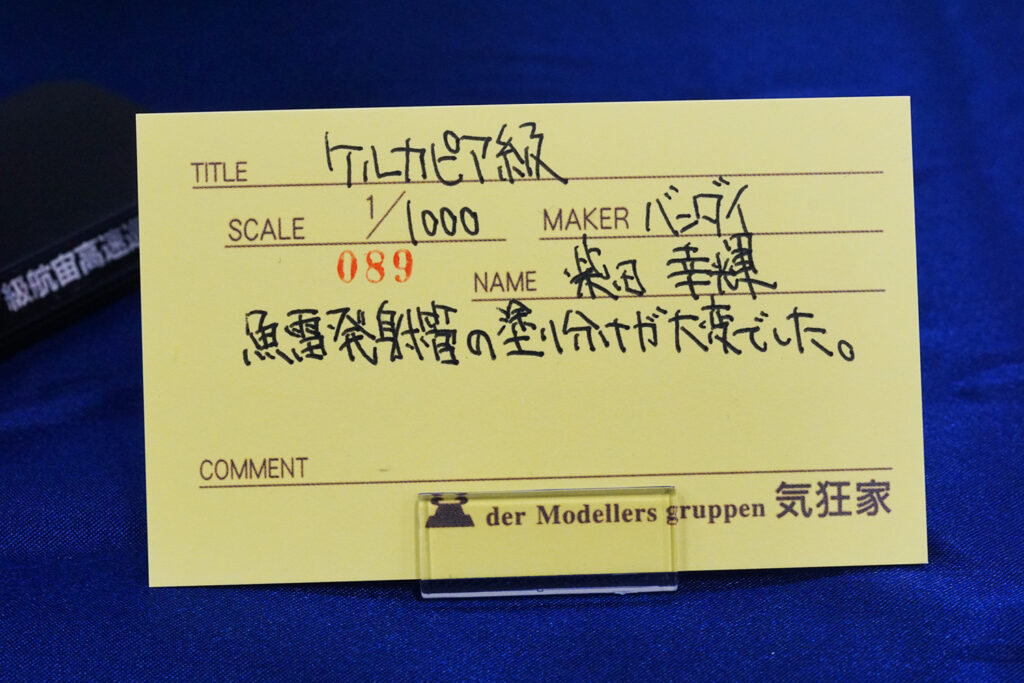 TITLE ケルカピア級
SCALE 1/1000 MAKER バンダイ
089
NAME 柴田 幸輝
魚雷発射管の塗り分けが大変でした。
COMMENT
der Modellers gruppen 気狂家
級航宙高速